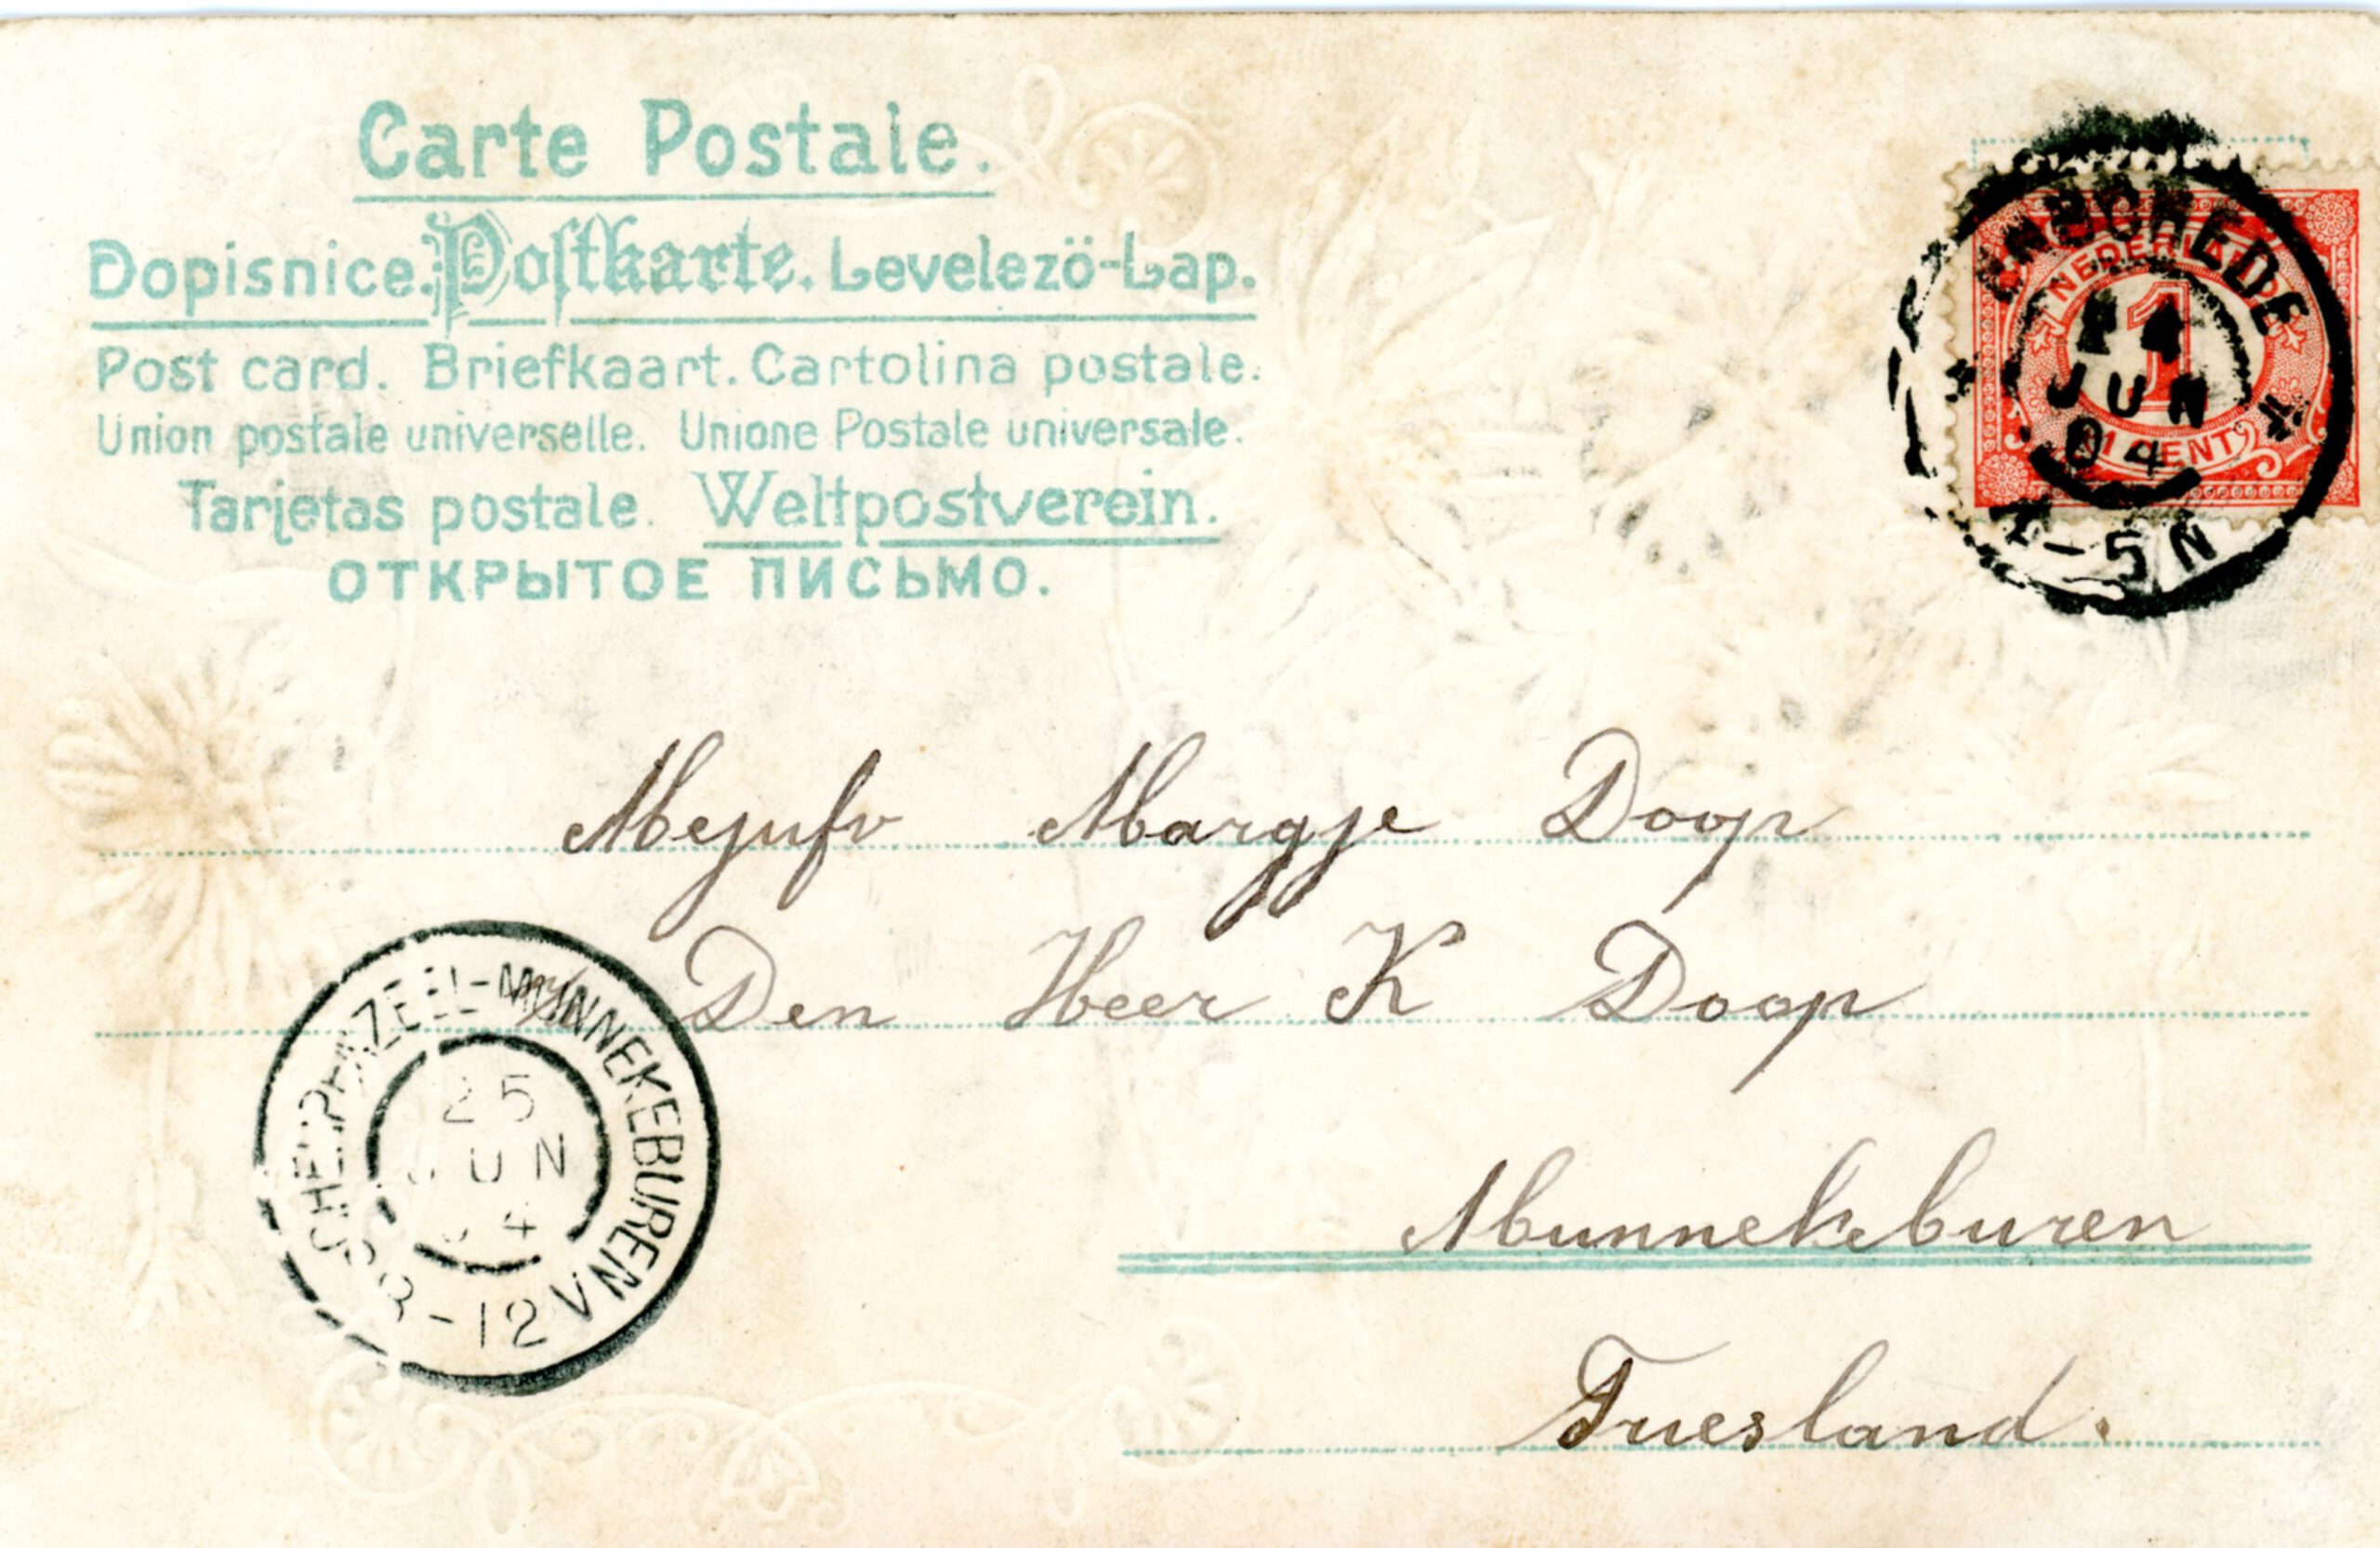 Carte Postale.
Dopisnice. Postkarte. Levelezö-Lap.
Post card. Briefkaart. Cartolina postale.
Union postale universelle. Unione Postale universale.
Tarjetas postale. Weltpostverein.
ОТКРЫТОЕ ПИСЬМО.
ENSCHEDE
24
JUN
04
-5N
NEDERLAND
1
1 CENT
Mejufr Margje Doop
Den Heer K Doop
Munnekeburen
Friesland.
SCHERPENZEEL-MUNNEKEBUREN
25
JUN
04
8-12V